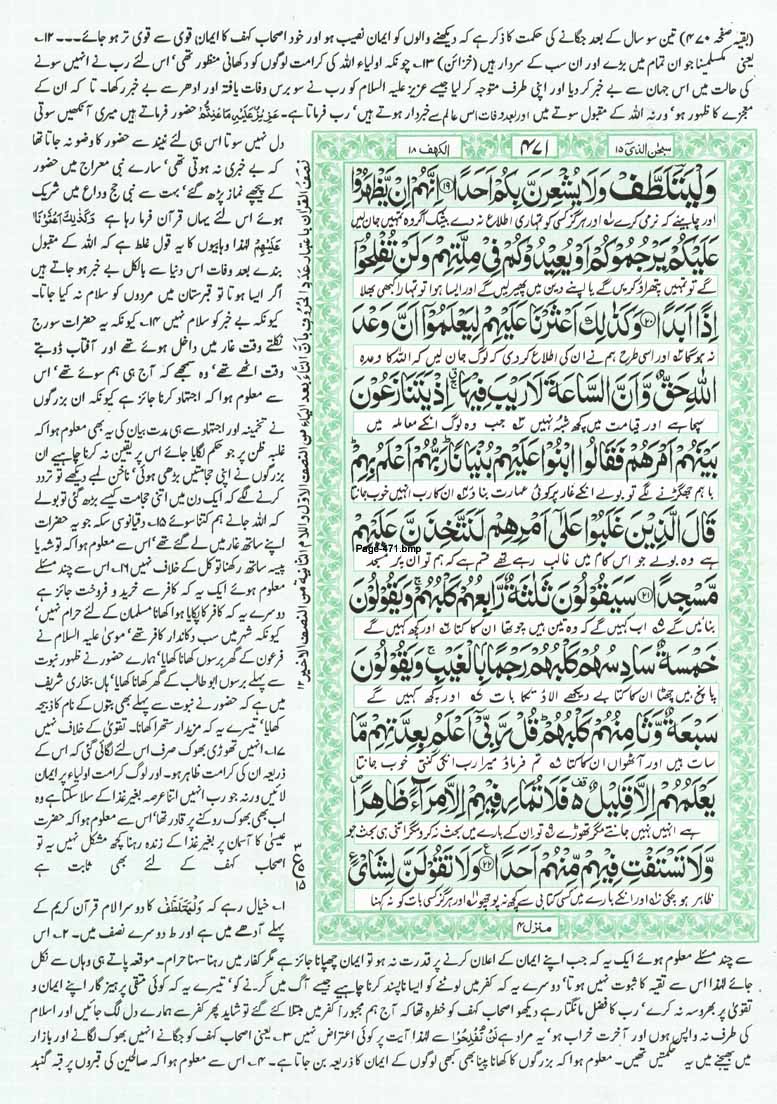 (بقیہ صفحہ ۴۷۰) تین سو سال کے بعد جگانے کی حکمت کا ذکر ہے کہ دیکھنے والوں کو ایمان نصیب ہو اور خود اصحاب کہف کا ایمان قوی سے قوی تر ہو جائے۔۔۔ ۱۲
یعنی مکسلمینا جو ان تمام میں بڑے اور ان سب کے سردار ہیں (خزائن) ۱۳۔ چونکہ اولیاء اللہ کی کرامت لوگوں کو دکھانی منظور تھی' اس لئے رب نے انہیں سونے
کی حالت میں اس جہان سے بے خبر کر دیا اور اپنی طرف متوجہ کر لیا جیسے عزیر علیہ السلام کو رب نے سو برس وفات یافتہ اور ادھر سے بے خبر رکھا۔ تا کہ ان کے
معجزے کا ظہور ہو' ورنہ اللہ کے مقبول سوتے میں اور بعد وفات اس عالم سے خبردار ہوتے ہیں' رب فرماتا ہے۔ عَزِيزٌ عَلَيْهِ مَا عَنِتُّمْ حضور فرماتے ہیں میری آنکھیں سوتی
دل نہیں سوتا اس ہی لئے نیند سے حضور کا وضو نہ جاتا تھا
کہ بے خبری نہ ہوتی تھی' سارے نبی معراج میں حضور
کے پیچھے نماز پڑھ گئے' بہت سے نبی حج وداع میں شریک
ہوئے اس لئے یہاں قرآن فرما رہا ہے وَكَذٰلِكَ اَعْثَرْنَا
عَلَيْهِمْ لہذا وہابیوں کا یہ قول غلط ہے کہ اللہ کے مقبول
بندے بعد وفات اس دنیا سے بالکل بے خبر ہو جاتے ہیں
اگر ایسا ہوتا تو قبرستان میں مردوں کو سلام نہ کیا جاتا۔
کیونکہ بے خبر کو سلام نہیں ۱۴۔ کیونکہ یہ حضرات سورج
نکلتے وقت غار میں داخل ہوئے تھے اور آفتاب ڈوبتے
وقت اٹھے تھے' وہ سمجھے کہ آج ہی ہم سوئے تھے' اس
سے معلوم ہوا کہ اجتہاد کرنا جائز ہے کیونکہ ان بزرگوں
نے تخمینہ اور اجتہاد سے ہی مدت بیان کی یہ بھی معلوم ہوا کہ
غلبہ ظن پر جو حکم لگایا جائے اس پر یقین نہ کرنا چاہیے ان
بزرگوں نے اپنی حجامتیں بڑھی ہوئی' ناخن لمبے دیکھے' تو تردد
کرنے لگے کہ ایک دن میں اتنی حجامت کیسے بڑھ گئی تو بولے
کہ اللہ جانے ہم کتنا سوئے ۱۵۔ دقیانوسی سکہ جو یہ حضرات
اپنے ساتھ غار میں لے گئے تھے' اس سے معلوم ہوا کہ توشہ یا
پیسہ ساتھ رکھنا توکل کے خلاف نہیں ۱۶۔ اس سے چند مسئلے
معلوم ہوئے ایک یہ کہ کافر سے خرید و فروخت جائز ہے
دوسرے یہ کہ کافر کا پکایا ہوا کھانا مسلمان کے لئے حرام نہیں'
کیونکہ شہر میں سب دکاندار کافر تھے' موسیٰ علیہ السلام نے
فرعون کے گھر برسوں کھانا کھایا' ہمارے حضور نے ظہور نبوت
سے پہلے برسوں ابو طالب کے گھر کھانا کھایا' ہاں بخاری شریف
میں ہے کہ حضور نے نبوت سے پہلے بھی بتوں کے نام کا ذبیحہ
کھایا' تیسرے یہ کہ مزیدار ستھرا کھانا۔ تقویٰ کے خلاف نہیں
۱۷۔ انہیں تھوڑی بھوک صرف اس لئے لگائی گئی کہ اس کے
ذریعہ ان کی کرامت ظاہر ہو۔ اور لوگ کرامت اولیاء پر ایمان
لائیں ورنہ جو رب انہیں اتنا عرصہ بغیر غذا کے سلا سکتا ہے وہ
اب بھی بھوک روکنے پر قادر تھا' اس سے معلوم ہوا کہ حضرت
عیسیٰ کا آسمان پر بغیر غذا کے زندہ رہنا کچھ مشکل نہیں یہ تو
اصحاب کہف کے لئے بھی ثابت ہے
سبحٰن الذی ۱۵
۴۷۱
الکہف ۱۸
وَلْيَتَلَطَّفْ وَلَا يُشْعِرَنَّ بِكُمْ اَحَدًا ۝۱۹ اِنَّهُمْ اِنْ يَّظْهَرُوْا
اور چاہیئے کہ نرمی کرے اور ہرگز کسی کو تمہاری اطلاع نہ دے بیشک اگر وہ تمہیں جان لیں
عَلَيْكُمْ يَرْجُمُوْكُمْ اَوْ يُعِيْدُوْكُمْ فِيْ مِلَّتِهِمْ وَلَنْ تُفْلِحُوْا
گے تو تمہیں پتھراؤ کریں گے یا اپنے دین میں پھیر لیں گے اور ایسا ہوا تو تمہارا کبھی بھلا
اِذًا اَبَدًا ۝۲۰ وَكَذٰلِكَ اَعْثَرْنَا عَلَيْهِمْ لِيَعْلَمُوْٓا اَنَّ وَعْدَ
نہ ہوگا اور اسی طرح ہم نے ان کی اطلاع کر دی کہ لوگ جان لیں کہ اللہ کا وعدہ
اللّٰهِ حَقٌّ وَّاَنَّ السَّاعَةَ لَا رَيْبَ فِيْهَا ۚ اِذْ يَتَنَازَعُوْنَ
سچا ہے اور قیامت میں کچھ شبہ نہیں جب وہ لوگ انکے معاملہ میں
بَيْنَهُمْ اَمْرَهُمْ فَقَالُوا ابْنُوْا عَلَيْهِمْ بُنْيَانًا ؕ رَبُّهُمْ اَعْلَمُ بِهِمْ
باہم جھگڑنے لگے تو بولے انکے غار پر کوئی عمارت بناؤ ان کا رب انہیں خوب جانتا
قَالَ الَّذِيْنَ غَلَبُوْا عَلٰٓى اَمْرِهِمْ لَنَتَّخِذَنَّ عَلَيْهِمْ
Page-471.bmp
ہے وہ بولے جو اس کام میں غالب رہے تھے قسم ہے کہ ہم تو ان پر مسجد
مَّسْجِدًا ۝۲۱ سَيَقُوْلُوْنَ ثَلٰثَةٌ رَّابِعُهُمْ كَلْبُهُمْ ۚ وَيَقُوْلُوْنَ
بنائیں گے اب کہیں گے کہ وہ تین ہیں چوتھا ان کا کتا اور کچھ کہیں گے
خَمْسَةٌ سَادِسُهُمْ كَلْبُهُمْ رَجْمًۢا بِالْغَيْبِ ۚ وَيَقُوْلُوْنَ
پانچ ہیں چھٹا ان کا کتا بے دیکھے الاؤ تکا بات اور کچھ کہیں گے
سَبْعَةٌ وَّثَامِنُهُمْ كَلْبُهُمْ ؕ قُلْ رَّبِّيْٓ اَعْلَمُ بِعِدَّتِهِمْ مَّا
سات ہیں اور آٹھواں ان کا کتا تم فرماؤ میرا رب انکی گنتی خوب جانتا
يَعْلَمُهُمْ اِلَّا قَلِيْلٌ ۫ فَلَا تُمَارِ فِيْهِمْ اِلَّا مِرَآءً ظَاهِرًا ۪
ہے انہیں نہیں جانتے مگر تھوڑے تو ان کے بارے میں بحث نہ کرو مگر اتنی ہی بحث جو
وَّلَا تَسْتَفْتِ فِيْهِمْ مِّنْهُمْ اَحَدًا ۝۲۲ وَلَا تَقُوْلَنَّ لِشَايْءٍ
ظاہر ہو چکی اور انکے بارے میں کسی کتابی سے کچھ نہ پوچھو اور ہرگز کسی بات کو نہ کہنا
منزل ۴
۱۔ خیال رہے کہ وَلْيَتَلَطَّفْ کا دوسرا لام قرآن کریم کے
پہلے آدھے میں ہے اور ط دوسرے نصف میں۔ ۲۔ اس
سے چند مسئلے معلوم ہوئے ایک یہ کہ جب اپنے ایمان کے اعلان کرنے پر قدرت نہ ہو تو ایمان چھپانا جائز ہے مگر کفار میں رہنا سہنا حرام۔ موقعہ پاتے ہی وہاں سے نکل
جائے لہذا اس سے تقیہ کا ثبوت نہیں ہوتا' دوسرے یہ کہ کفر میں لوٹنے کو ایسا نا پسند کرنا چاہیے جیسے آگ میں گرنے کو' تیسرے یہ کہ کوئی متقی پرہیز گار اپنے ایمان و
تقویٰ پر بھروسہ نہ کرے' رب کا فضل مانگتا رہے دیکھو اصحاب کہف کو خطرہ تھا کہ آج ہم مجبوراً کفر میں مبتلا کئے گئے تو شاید پھر کفر سے ہمارے دل لگ جائیں اور اسلام
کی طرف نہ واپس ہوں اور آخرت خراب ہو' یہ مراد ہے لَنْ تُفْلِحُوْٓا سے لہذا آیت پر کوئی اعتراض نہیں ۳۔ یعنی اصحاب کہف کو جگانے انہیں بھوک لگانے اور بازار
میں بھیجنے میں یہ حکمتیں تھیں۔ معلوم ہوا کہ بزرگوں کا کھانا پینا بھی کبھی لوگوں کے ایمان کا ذریعہ بن جاتا ہے۔ ۴۔ اس سے معلوم ہوا کہ صالحین کی قبروں پر قبہ گنبد